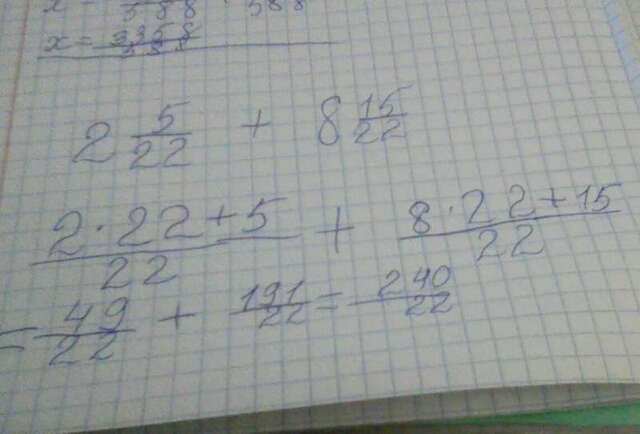 x = 3358/588
2 5/22 + 8 15/22
2·22+5/22 + 8·22+15/22
= 49/22 + 191/22 = 240/22